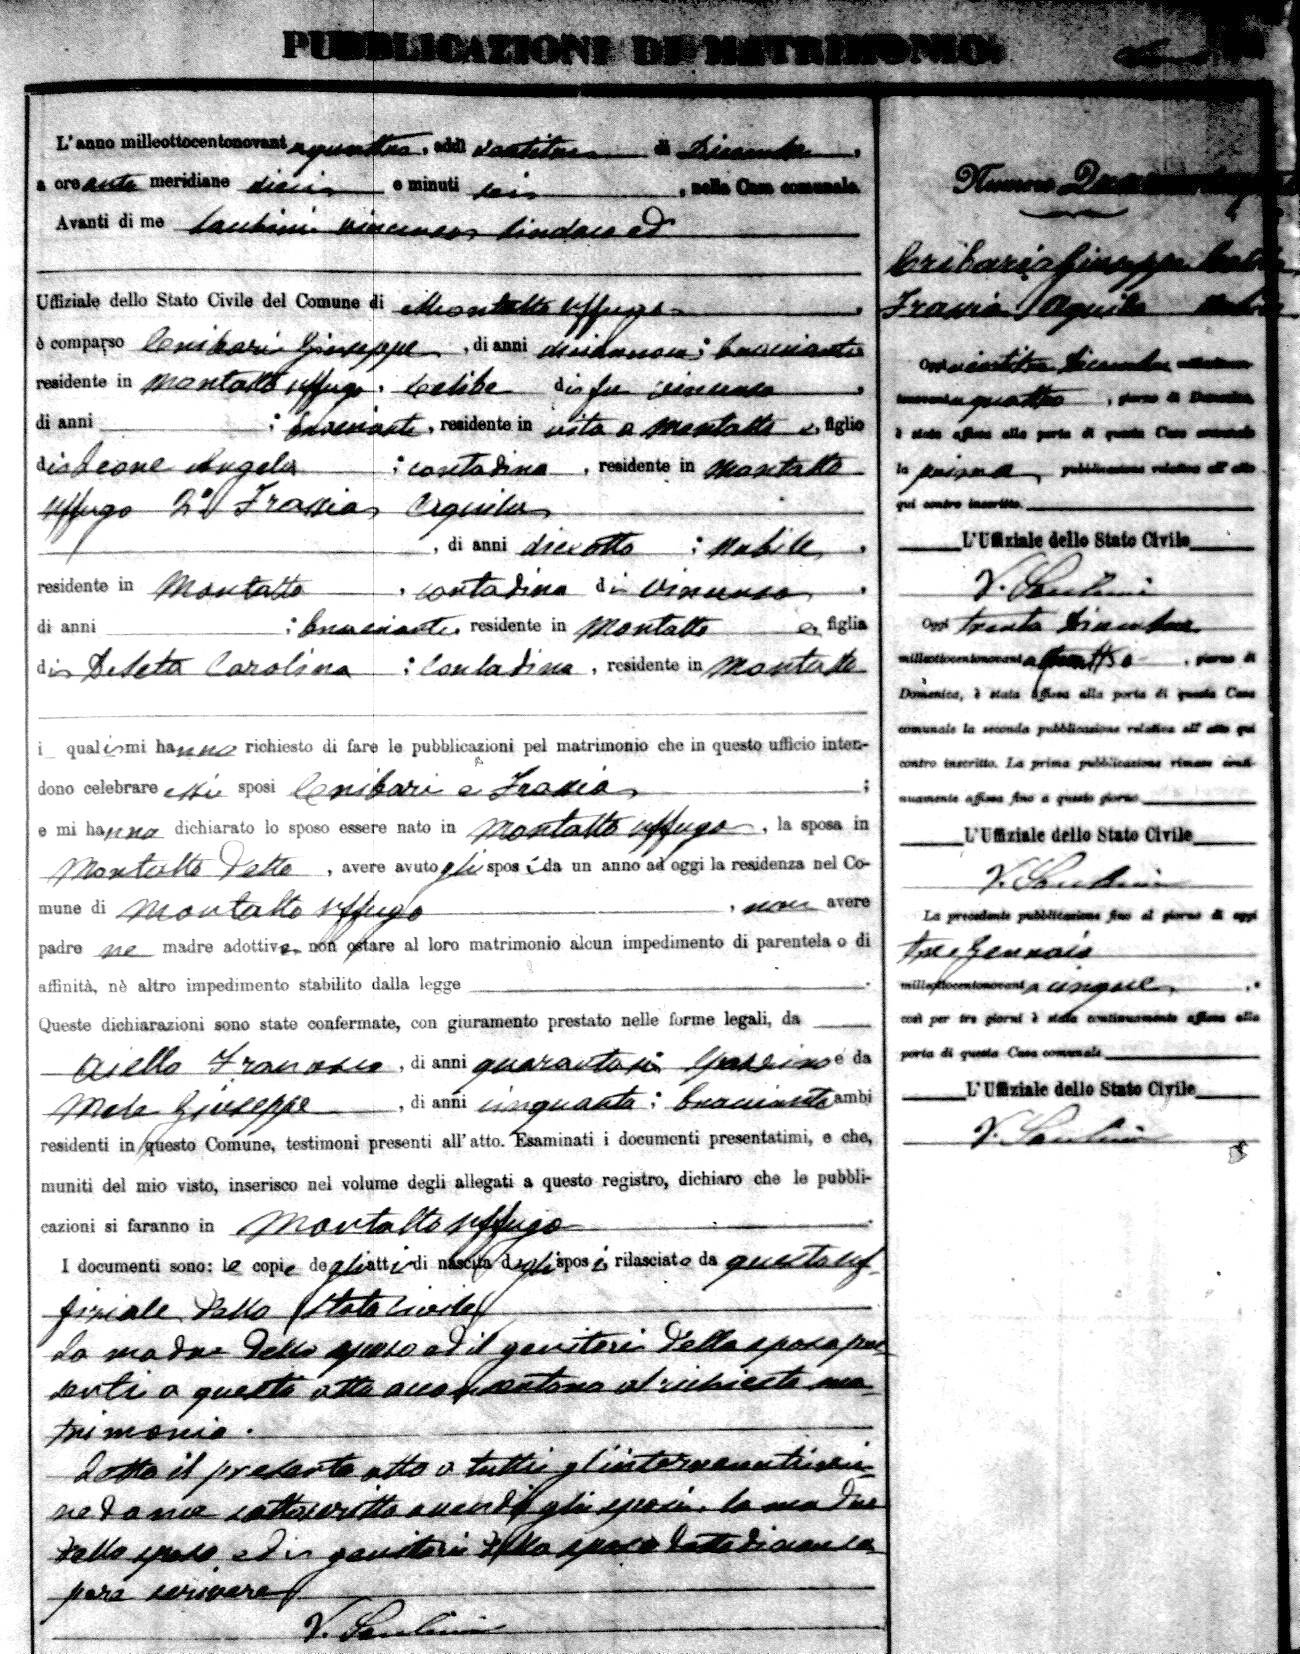 PUBBLICAZIONI DI MATRIMONIO.
L'anno milleottocentonovantaquattro, addì ventitre di Dicembre,
a ore ante meridiane dieci e minuti sei, nella Casa comunale.
Avanti di me Vincenzo Sindaco ed
Uffiziale dello Stato Civile del Comune di Montalto Uffugo,
è comparso Cribari Giuseppe, di anni diciannove; bracciante
residente in Montalto Uffugo, celibe di fu Vincenzo,
di anni ; bracciante, residente in vita a Montalto e, figlio
di Leone Angela ; contadina, residente in Montalto
Uffugo 2° Frassia Aquila
, di anni dieciotto ; nubile,
residente in Montalto, contadina di Vincenzo,
di anni ; bracciante, residente in Montalto e, figlia
di DeSeta Carolina ; Contadina, residente in Montalto
i quali mi hanno richiesto di fare le pubblicazioni pel matrimonio che in questo ufficio inten-
dono celebrare essi sposi Cribari e Frassia ;
e mi hanno dichiarato lo sposo essere nato in Montalto Uffugo, la sposa in
Montalto detto, avere avuto gli sposi da un anno ad oggi la residenza nel Co-
mune di Montalto Uffugo, non avere
padre ne madre adottivi, non ostare al loro matrimonio alcun impedimento di parentela o di
affinità, nè altro impedimento stabilito dalla legge .
Queste dichiarazioni sono state confermate, con giuramento prestato nelle forme legali, da
Aiello Francesco, di anni e da
Giuseppe, di anni cinquanta; bracciante ambi
residenti in questo Comune, testimoni presenti all'atto. Esaminati i documenti presentatimi, e che,
muniti del mio visto, inserisco nel volume degli allegati a questo registro, dichiaro che le pubbli-
cazioni si faranno in Montalto Uffugo .
I documenti sono: le copie degli atti di nascita degli sposi rilasciate da questo uf-
fiziale dello Stato Civile
La madre dello sposo ed il genitori della sposa pre-
senti a questo atto acconsentono al richiesto ma-
trimonio.
Letto il presente atto a tutti gl'intervenuti vie-
ne da me sottoscritto avendo gli sposi, la madre
dello sposo ed i genitori della sposa detto di non sa-
pere scrivere
V.
Numero
Cribari Giuseppe
Frassia Aquila
Oggi ventitre Dicembre milleottocento-
novantaquattro, giorno di Domenica,
è stata affissa alla porta di questa Casa comunale
la prima pubblicazione relativa all'atto
qui contro inscritto.
L'Uffiziale dello Stato Civile
V.
Oggi trenta Dicembre
milleottocentonovantaquattro, giorno di
Domenica, è stata affissa alla porta di questa Casa
comunale la seconda pubblicazione relativa all'atto qui
contro inscritto. La prima pubblicazione rimase conti-
nuamente affissa fino a questo giorno
L'Uffiziale dello Stato Civile
V.
La precedente pubblicazione fino al giorno di oggi
tre Gennaio
milleottocentonovantacinque,
così per tre giorni è stata continuamente affissa alla
porta di questa Casa comunale
L'Uffiziale dello Stato Civile
V.